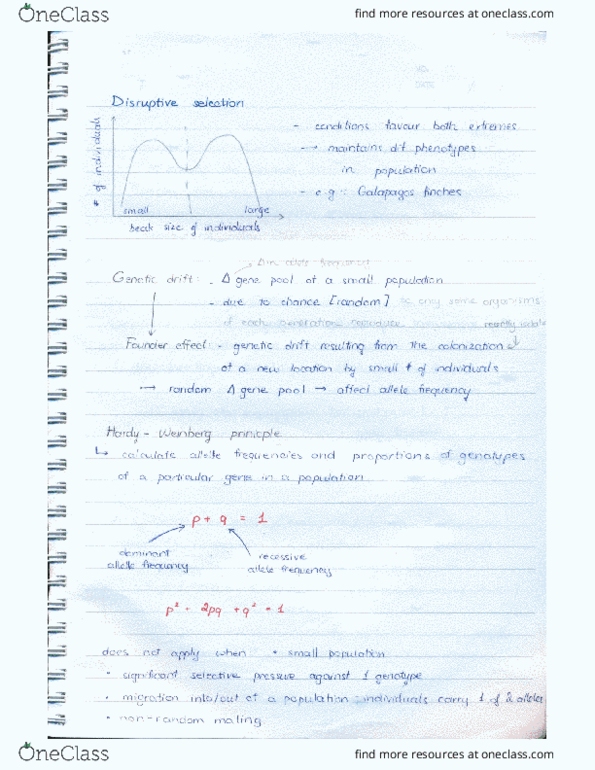 OneClass
find more resources at oneclass.com
Disruptive selection
# of individuals
small
large
beak size of individuals
- conditions favour both extremes
→ maintains dif phenotypes
in population
- e.g: Galapagos finches
Δ in allele frequency
Genetic drift: - Δ gene pool of a small population
- due to chance [random] so only some organisms
of each generation reproduce
recently isolate
Founder effect: - genetic drift resulting from the colonization
of a new location by small # of individuals
→ random Δ gene pool → affect allele frequency
Hardy - Weinberg principle
↳ calculate allele frequencies and proportions of genotypes
of a particular gene in a population
p + q = 1
dominant
allele frequency
recessive
allele frequency
p² - 2pq + q² = 1
does not apply when • small population
• significant selective pressure against 1 genotype
• migration into/out of a population: individuals carry 1 of 2 alleles
• non-random mating
OneClass
find more resources at oneclass.com